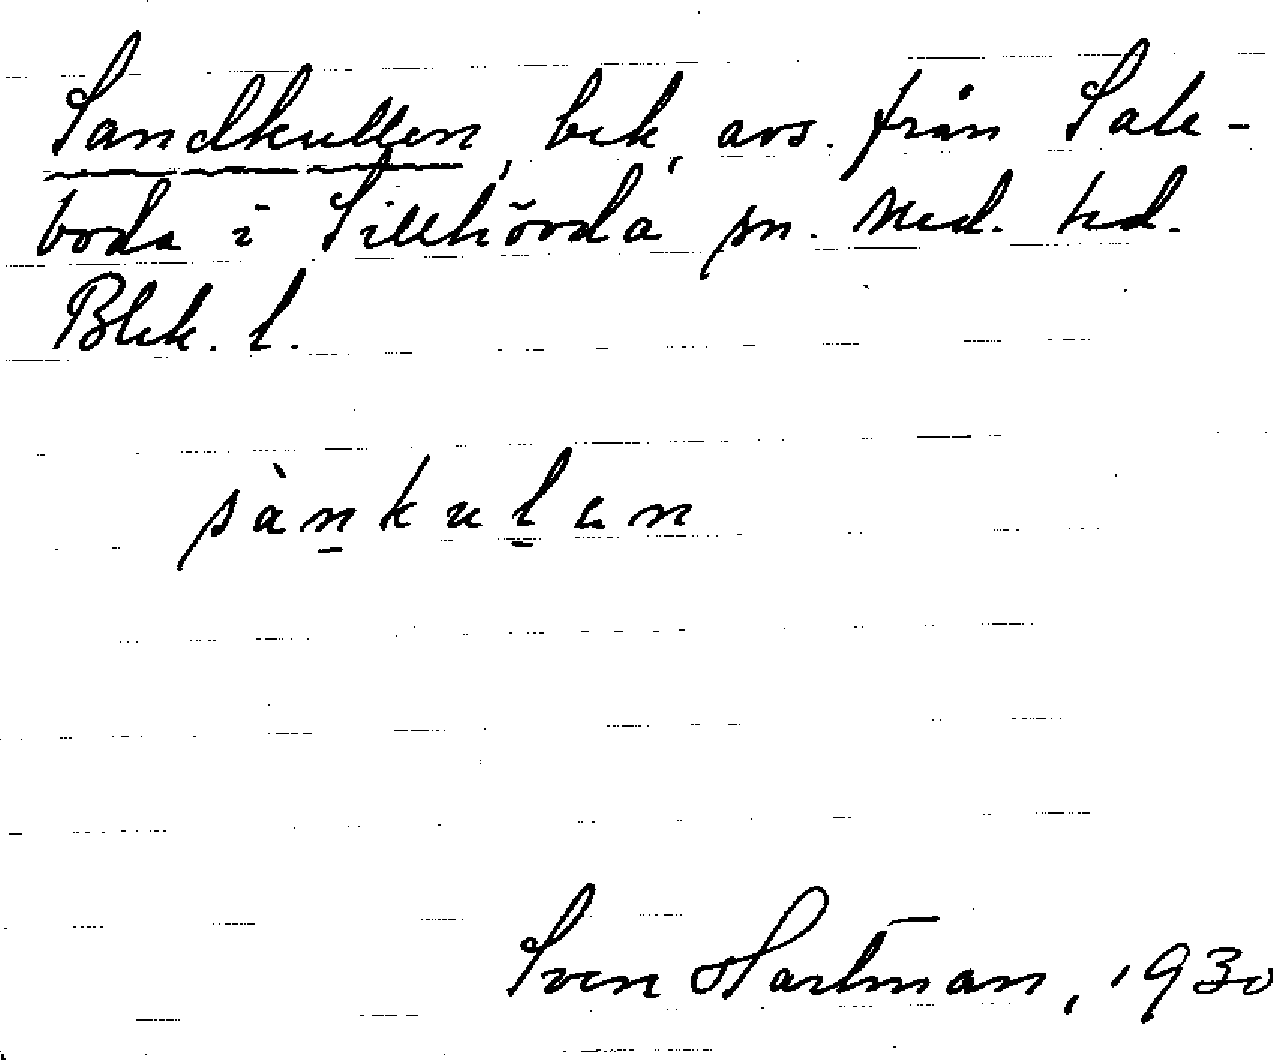 Sandkullen, bek, avs. från Sale-
boda i Sillhövda sn. Med. hd.
Blek. l.
sànkulen
Sven Hartman, 1930